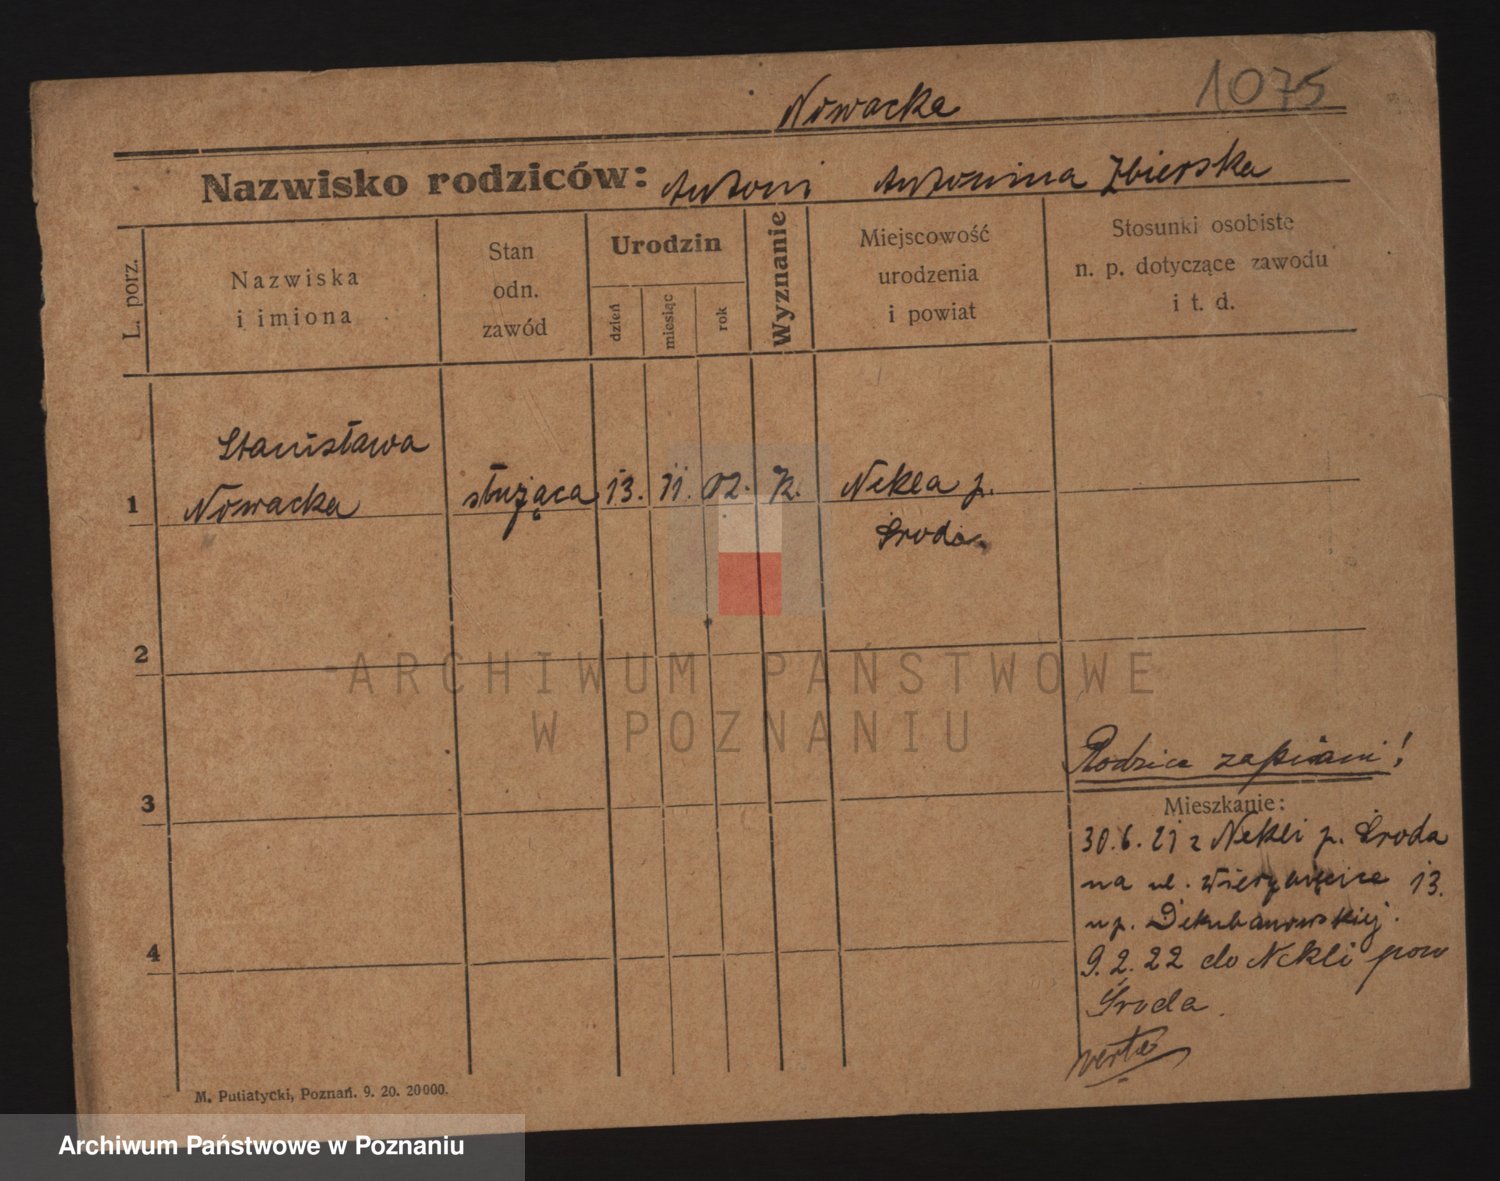 Nowacka
1075
Nazwisko rodziców: Antoni Antonina Zbierska
L. porz.
Nazwiska
i imiona
Stan
odn.
zawód
Urodzin
dzień
miesiąc
rok
Wyznanie
Miejscowość
urodzenia
i powiat
Stosunki osobiste
n. p. dotyczące zawodu
i t. d.
Stanisława
1 Nowacka służąca 13. 11. 02. k. Nekla p.
Środa.
2
ARCHIWUM PAŃSTWOWE
W POZNANIU
Rodzice zapisani!
3
Mieszkanie:
30.6.21 z Nekli p. Środa
na ul. 13.
up.
4
9.2.22 do Nekli pow
Środa.
verte
M. Putiatycki, Poznań. 9. 20. 20000.
Archiwum Państwowe w Poznaniu